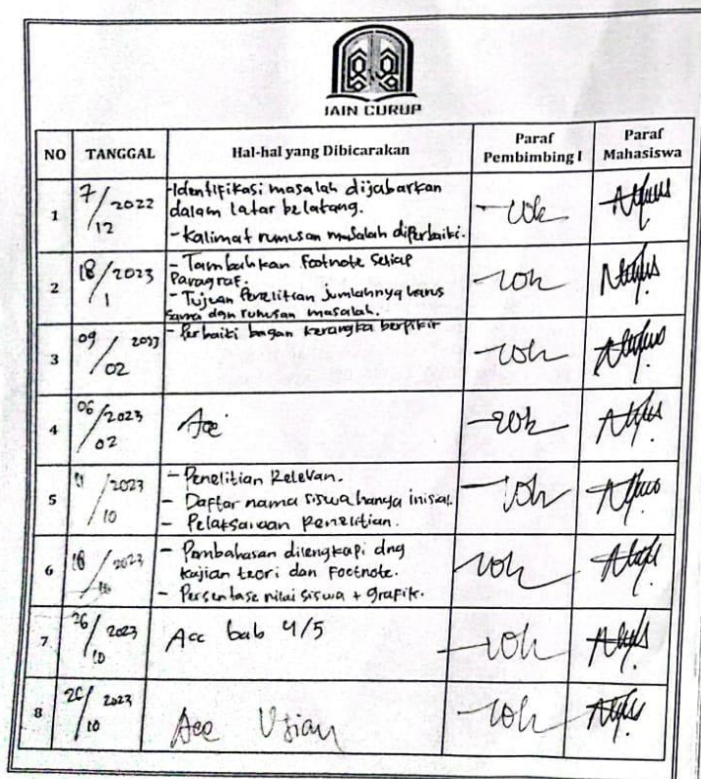 IAIN CURUP
NO TANGGAL Hal-hal yang Dibicarakan Paraf Pembimbing I Paraf Mahasiswa
1 7/12 2022 -Identifikasi masalah dijabarkan
dalam latar belakang.
- Kalimat rumusan masalah diperbaiki.
2 18/1 2023 - Tambahkan Footnote Setiap
Paragraf.
- Tujuan Penelitian jumlahnya harus
sama dgn rumusan masalah.
3 09/02 2023 - Perbaiki bagan kerangka berpikir
4 06/02 2023 Acc
5 /10 2023 - Penelitian Relevan.
- Daftar nama siswa hanya inisial.
- Pelaksanaan Penelitian.
6 18/10 2023 - Pembahasan dilengkapi dng
kajian teori dan Footnote.
- Persentase nilai siswa + grafik.
7 26/10 2023 Acc bab 4/5
8 26/10 2023 Acc Ujian